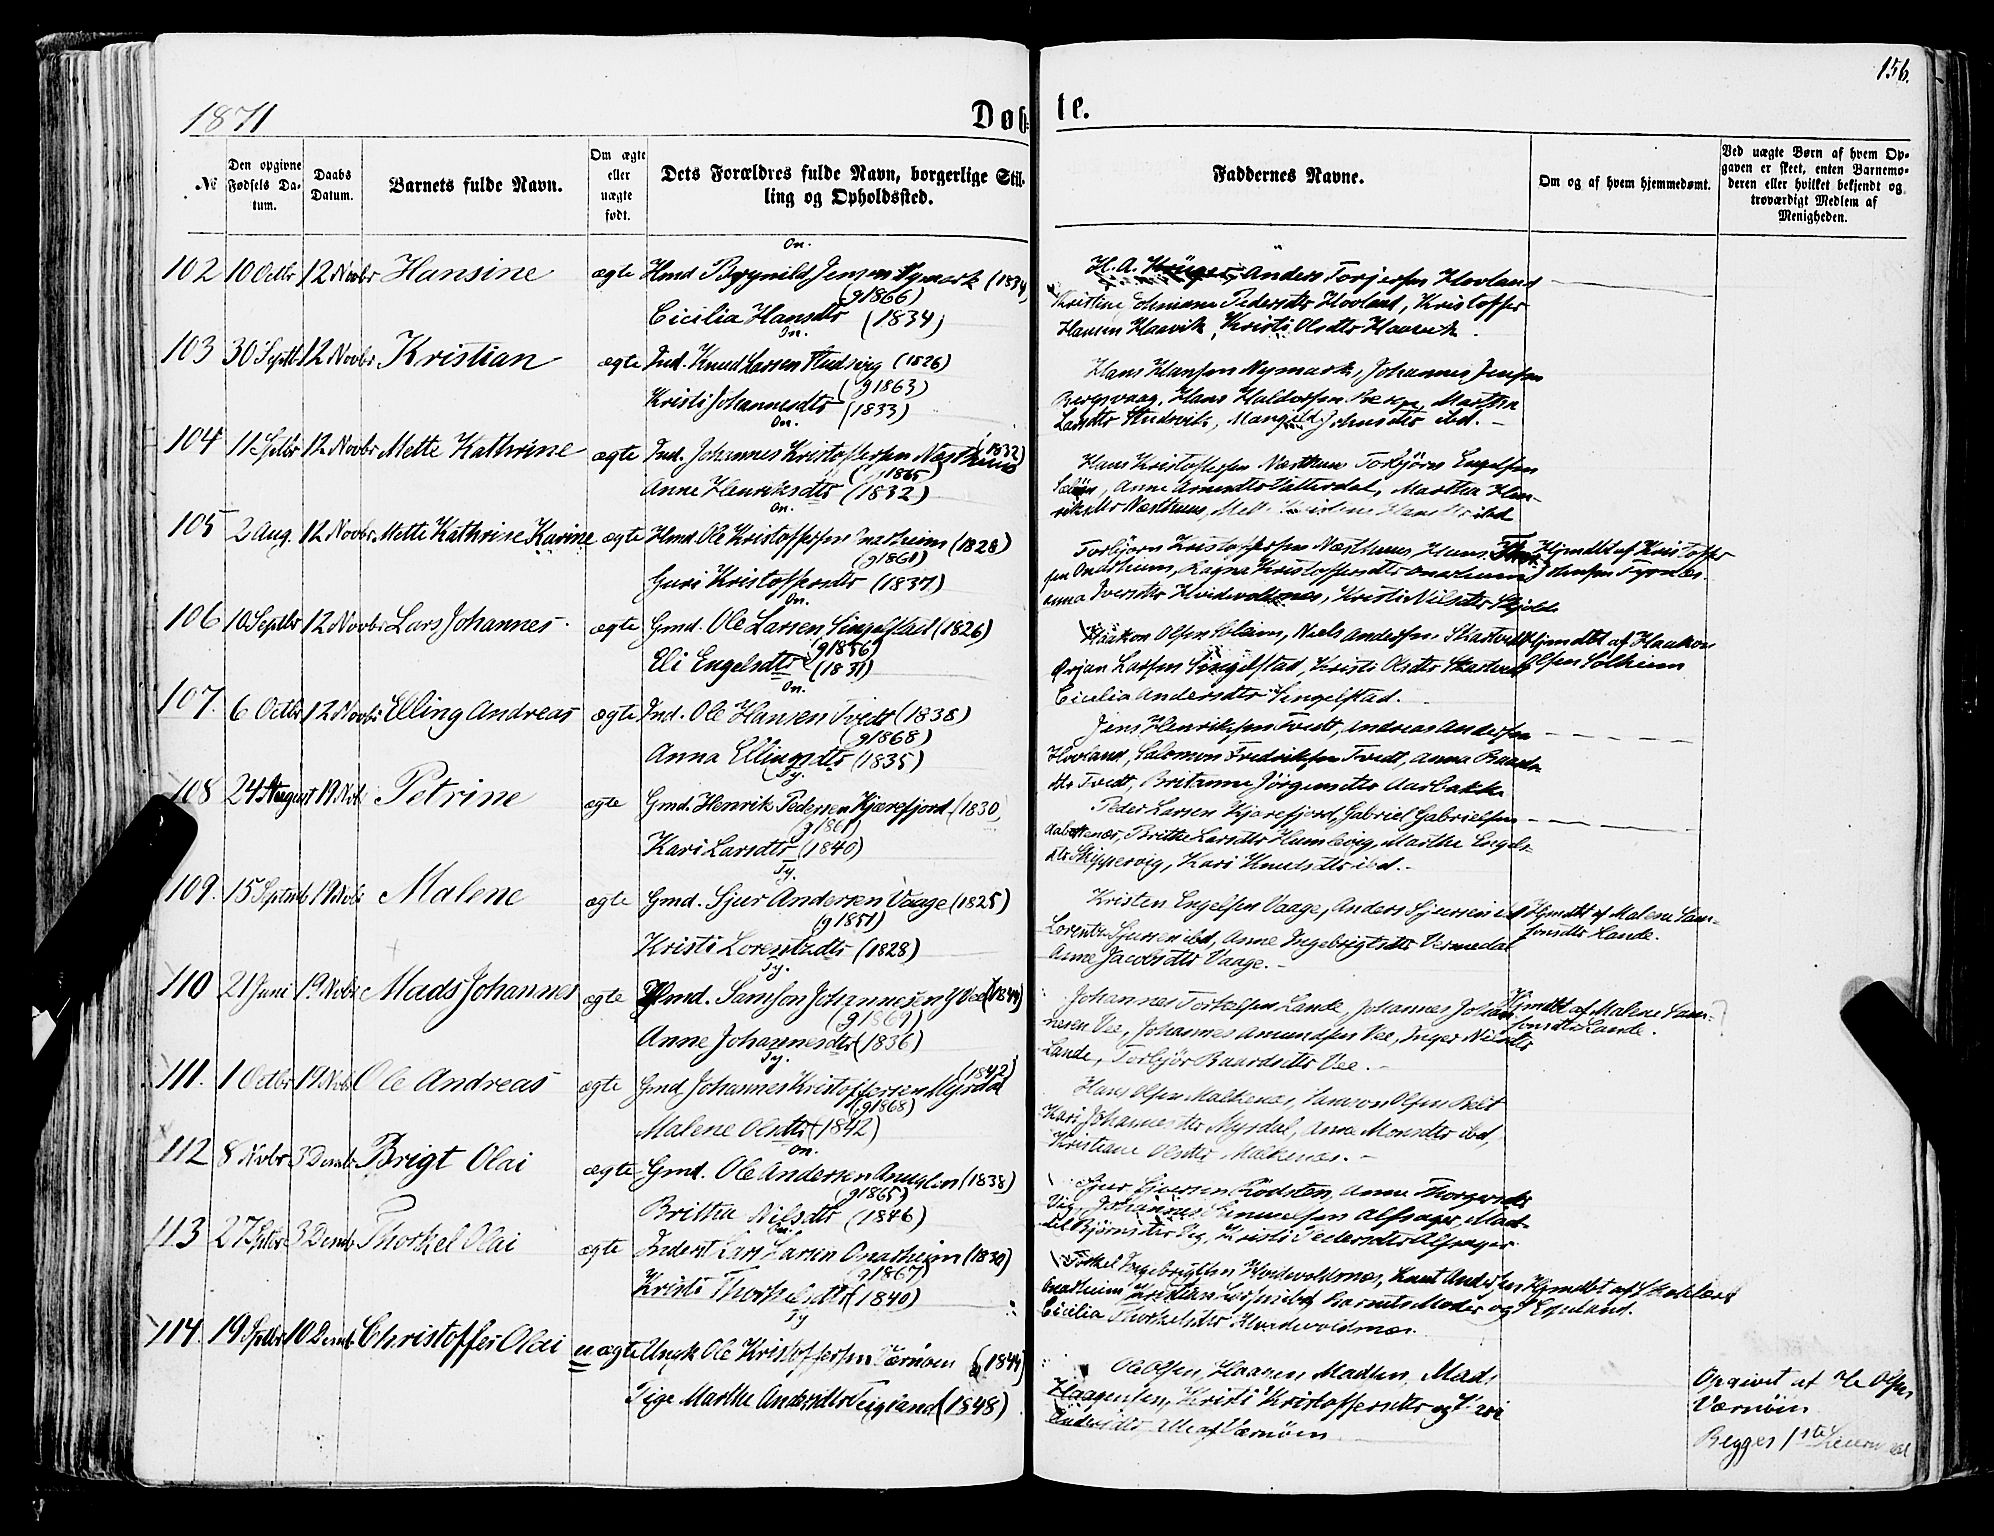 156.
1871
Døbte.
№
Den opgivne Fødsels Datum.
Daabs Datum.
Barnets fulde Navn.
Om ægte eller uægte født.
Dets Forældres fulde Navn, borgerlige Stilling og Opholdssted.
Faddernes Navne.
Om og af hvem hjemmedømt.
Ved uægte Børn af hvem Opgaven er skeet, enten Barnemoderen eller hvilket bekjendt og troværdigt Medlem af Menigheden.
On.
102 10 Octbr 12 Novbr Hansine ægte Hmd Brynild Jensen Nymark (1834)
(g1866)
Cicilia Hansdtr (1834)
H. A. Krüger, Anders Torjersen Hovland
Kristine Pedersdtr Hovland, Kristoffer
Hansen Haavik, Kristi Olsdtr Haavik.
On.
103 30 Septbr 12 Novbr Kristian ægte Ind. Knud Larsen Studsvig (1826)
(g1863)
Kristi Johannesdtr (1833)
Hans Hansen Nymark, Johannes Jensen
Bergsvaag, Hans Haldorsen Berge, Martha
Larsdtr Studsvik, Mangild Johnsdtr ibd.
On.
104 11 Septbr 12 Novbr Mette Kathrine ægte Ind. Johannes Kristoffersen Næsthuus (1832)
(g1865)
Anne Henriksdtr (1832)
Hans Kristoffersen Næsthuus Torbjörn Engelsen
Anne Vatterdal, Martha Hen-
riksdtr Næsthuus, Hansdtr ibd
On.
105 2 Aug. 12 Novbr Mette Kathrine Karine ægte Hmd. Ole Kristoffersen Onarheim (1828)
(g1861)
Guri Kristoffersdtr (1837)
Torbjorn Kristoffersen Næsthuus, Hans
sen Onarheim, Ragna Kristoffersdtr Onarheim
anna Iversdtr Hvidevoldsnæs, Kristi Nilsdtr
Hjmdbt af Kristoffer
Johnsen
On.
106 10 Septbr 12 Novbr Lars Johannes. ægte Gmd. Ole Larsen Singelstad (1826)
(g1856)
Eli Engelsdtr (1831)
Haakon Olsen Solheim, Niels Andersen Skartveit
Ørjan Larsen Singelstad, Kristi Olsdtr Skartveit
Cicilia Andersdtr Singelstad.
Hjmdbt af Haakon
Olsen Solheim
On.
107. 6 Octbr 12 Novbr Elling Andreas ægte Ind. Ole Hansen Tvedt (1838)
(g1868)
Anna Ellingsdtr (1835)
Jens Henriksen Tvedt, Andreas Andersen
Hovland, Salomon Fredriksen Tvedt, Anna Baards-
dtr Tvedt, Britanne Jörgensdtr Aarbakke
Ty.
108 24 August 19 Nvbr Petrine ægte Gmd. Henrik Pedersen Kjærefjord (1830)
(g1861)
Kari Larsdtr (1840)
Peder Larsen Kjærefjord, Gabriel Gabrielsen
Britha Larsdtr Humlevig, Marthe Engels-
dtr Skippervig, Kari Knudsdtr ibd.
Ty.
109. 15 Septemb 19 Nvbr Malene ægte Gmd. Sjur Andersen Vaage (1825)
(g1851)
Kristi Lorentzdtr (1828)
Kristen Engelsen Vaage, Anders Sjursen ibd
Lorentz Sjursen ibd, Anne Ingebrigtsdtr Vermedal
Anne Jacobsdtr Vaage.
Hjmdbt af Malene Sam-
sonsdtr Lande.
Ty.
110 21 Juni 19 Nvbr Mads Johannes ægte Hmd. Samson Johannesen Y Vee (1844)
(g1869)
Anne Johannesdtr (1836)
Johannes Torkelsen Lande, Johannes Johan-
nesen Vee, Johannes Amundsen Vee, Inger Nilsdtr
Lande, Torbjør Baardsdtr Vee.
Hjmdbt af Malene Sam-
sonsdtr Lande.
Ty.
111. 1 Octbr 19 Nvbr Ole Andreas ægte Gmd Johannes Kristoffersen Myrdal (1842)
(g1868)
Malene Olsdtr (1842)
Hans Olsen Malkenæs, Samson Olsen
Kari Johannesdtr Myrdal, Anna Monsdtr ibd,
Kristiane Olsdtr Malkenæs.
On.
112 8 Nvbr 3 Decmb Brigt Olai ægte Gmd. Ole Andersen Anuglen (1838)
(g1865)
Britha Nilsdtr (1846)
Sjur Sjursen Rödsten, Anna Thorgersdtr
Vig, Johannes Simmelsen Alsager, Mad-
del Björnsdtr Vig, Kristi Pedersdtr Alsager
On.
113 27 Septbr 3 Decmb Thorkel Olai ægte Inderst Lars Larsen Onarheim (1830)
(g1867)
Kristi Thorkelsdtr (1840)
Torkel Ingebrigtsen Hvidevoldsnæs, Knut Andersen
Onarheim Kristian Larsen ibd, Barnets Moder og
Cicilia Thorkelsdtr Hvidevoldsnæs.
Hjmdbt af
Ty
114. 19 Septbr 10 Decmb Christoffer Olai uægte Ungk Ole Kristoffersen Værnöen (1844)
Pige Marthe Andersdtr Teigland (1848)
Ole Olsen, Haagen Madsen, Mads
Haagensen, Kristi Kristoffersdtr og
Andersdtr, Alle af Værnöen
Opgivet af Ole Olsen
Værnöen
Begges 1ste Leiermaal